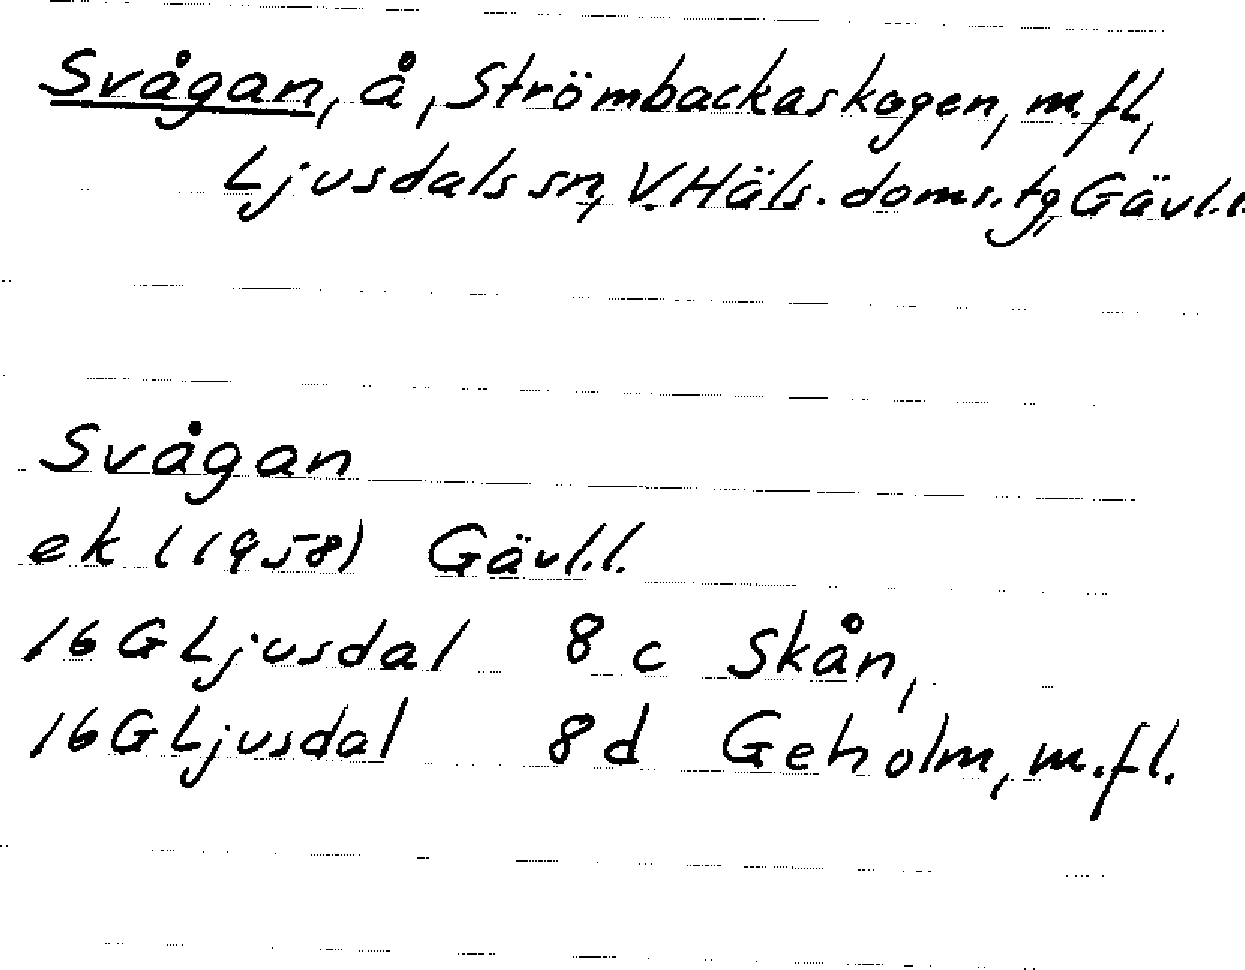 Svågan, å, Strömbackaskogen, m.fl,
Ljusdals sn, V.Häls. doms.tg, Gävl.l.
Svågan
ek (1958) Gävl.l.
16G Ljusdal 8c Skån,
16G Ljusdal 8d Geholm, m.fl.